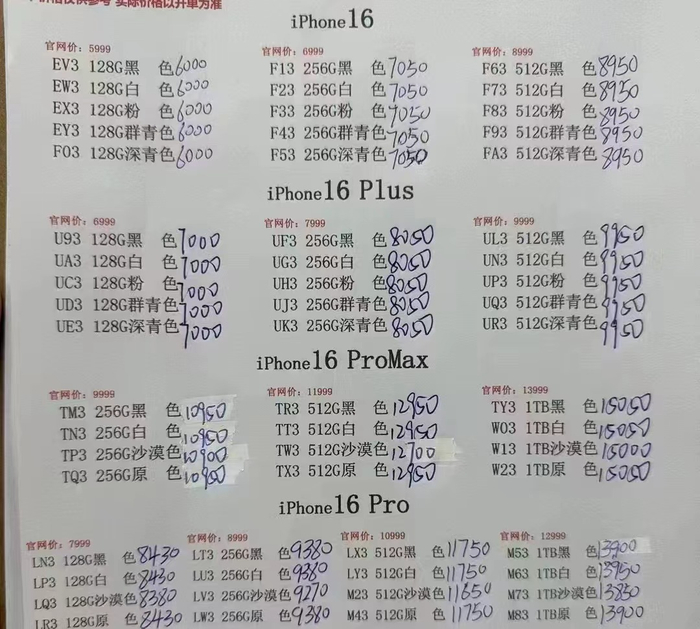 价格仅供参考 实际价格以开单为准
iPhone16
官网价：5999
EV3 128G黑 色6000
EW3 128G白 色6000
EX3 128G粉 色6000
EY3 128G群青色6000
F03 128G深青色6000
官网价：6999
F13 256G黑 色7050
F23 256G白 色7050
F33 256G粉 色7050
F43 256G群青色7050
F53 256G深青色7050
官网价：8999
F63 512G黑 色8950
F73 512G白 色8950
F83 512G粉 色8950
F93 512G群青色8950
FA3 512G深青色8950
iPhone16 Plus
官网价：6999
U93 128G黑 色7000
UA3 128G白 色7000
UC3 128G粉 色7000
UD3 128G群青色7000
UE3 128G深青色7000
官网价：7999
UF3 256G黑 色8050
UG3 256G白 色8050
UH3 256G粉 色8050
UJ3 256G群青色8050
UK3 256G深青色8050
官网价：9999
UL3 512G黑 色9950
UN3 512G白 色9950
UP3 512G粉 色9950
UQ3 512G群青色9950
UR3 512G深青色9950
iPhone16 ProMax
官网价：9999
TM3 256G黑 色10950
TN3 256G白 色10950
TP3 256G沙漠色10900
TQ3 256G原 色10950
官网价：11999
TR3 512G黑 色12950
TT3 512G白 色12950
TW3 512G沙漠色12700
TX3 512G原 色12950
官网价：13999
TY3 1TB黑 色15050
W03 1TB白 色15050
W13 1TB沙漠色15000
W23 1TB原 色15050
iPhone16 Pro
官网价：7999
LN3 128G黑 色8430
LP3 128G白 色8430
LQ3 128G沙漠色8380
LR3 128G原 色8430
官网价：8999
LT3 256G黑 色9380
LU3 256G白 色9380
LV3 256G沙漠色9270
LW3 256G原 色9380
官网价：10999
LX3 512G黑 色11750
LY3 512G白 色11750
M23 512G沙漠色11650
M43 512G原 色11750
官网价：12999
M53 1TB黑 色13900
M63 1TB白 色13950
M73 1TB沙漠色13850
M83 1TB原 色13900